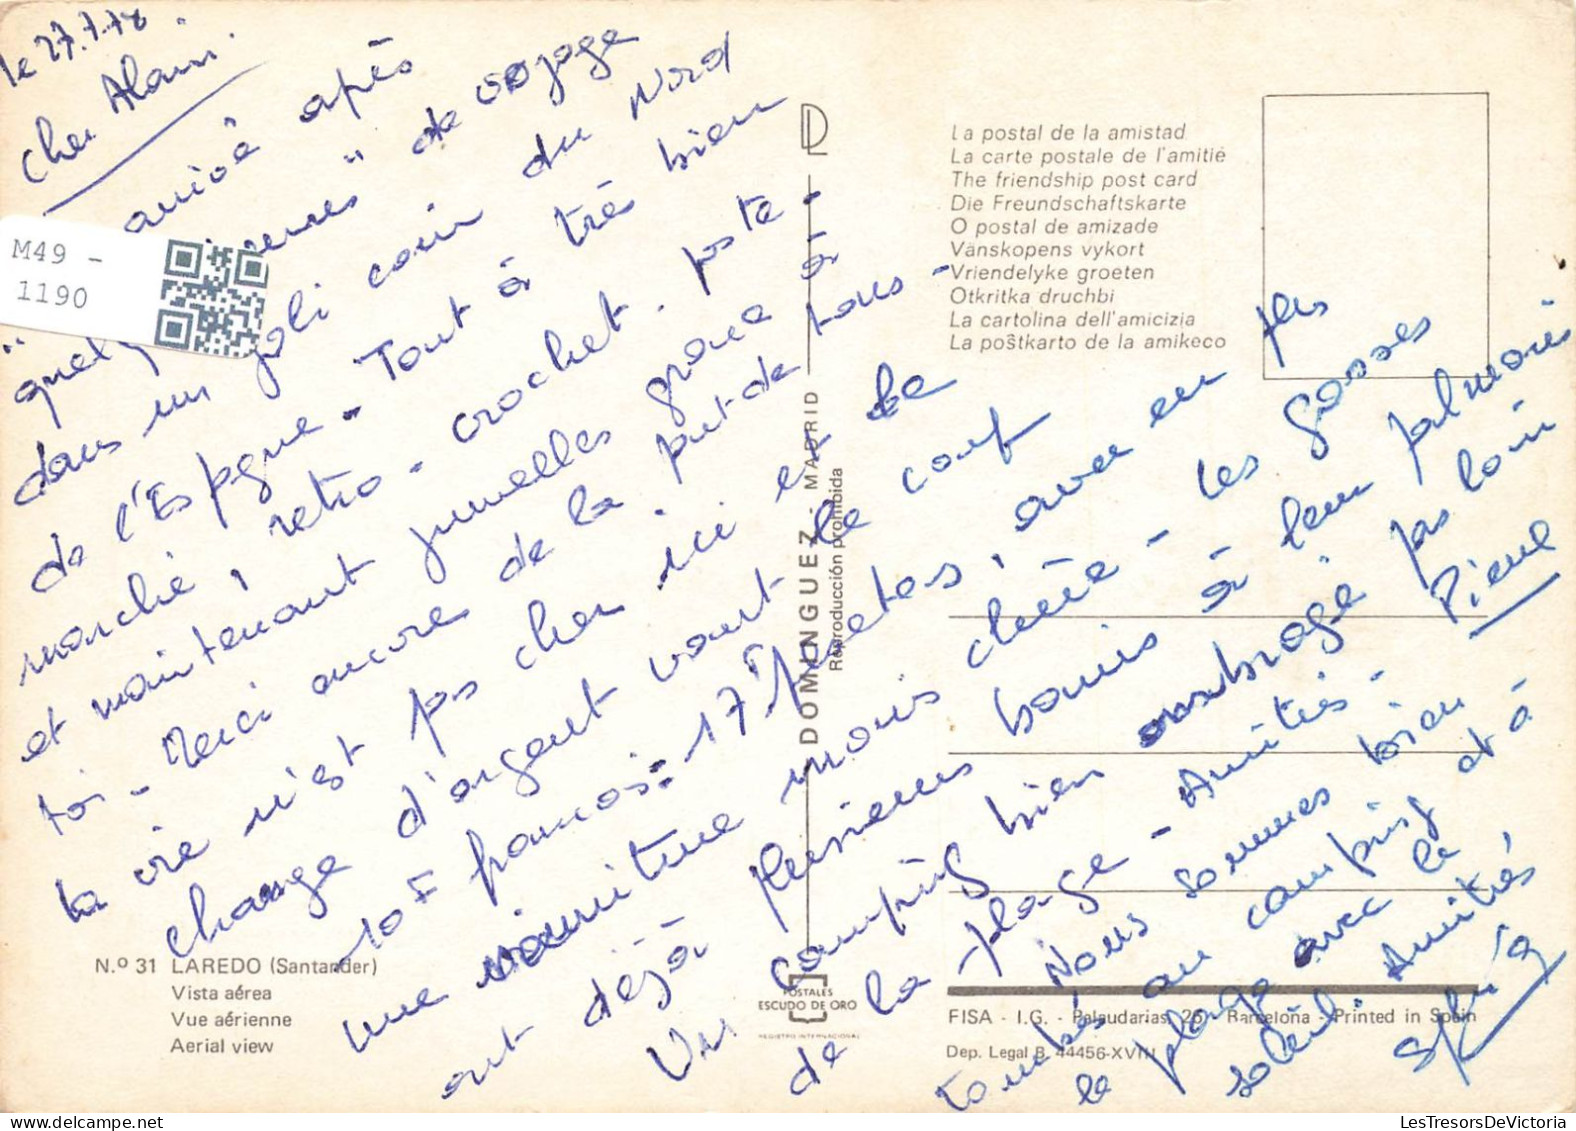 le 27.7.78
Cher Alain.
arrivé après
"quelques heures" de voyage
dans un joli coin du Nord
de l'Espagne - Tout à très bien
marché, retro - crochet. porte -
et maintenant jumelles grace à
toi - Merci encore de la part de tous -
la vie n'est pas cher ici et le
change d'argent vaut le coup
10 F francais = 175 pesetas, avec en plus
une nourriture moins chère - les gosses
ont déjà plusieurs bonnis à leur palmarès
Un camping bien ombragé pas loin
de la plage - Amitiés - Pierre
Nous sommes bien
tombés au camping et à
la plage avec le
soleil. Amitiés
Sylvia
M49 -
1190
DOMINGUEZ - MADRID
Reproducción prohibida
La postal de la amistad
La carte postale de l'amitié
The friendship post card
Die Freundschaftskarte
O postal de amizade
Vänskopens vykort
Vriendelyke groeten
Otkritka druchbi
La cartolina dell'amicizia
La poŝtkarto de la amikeco
N.º 31 LAREDO (Santander)
Vista aérea
Vue aérienne
Aerial view
POSTALES
ESCUDO DE ORO
REGISTRO INTERNACIONAL
FISA - I.G. - Palaudarias, 26 - Barcelona - Printed in Spain
Dep. Legal B. 44456-XVIII
LesTresorsDeVictoria.com